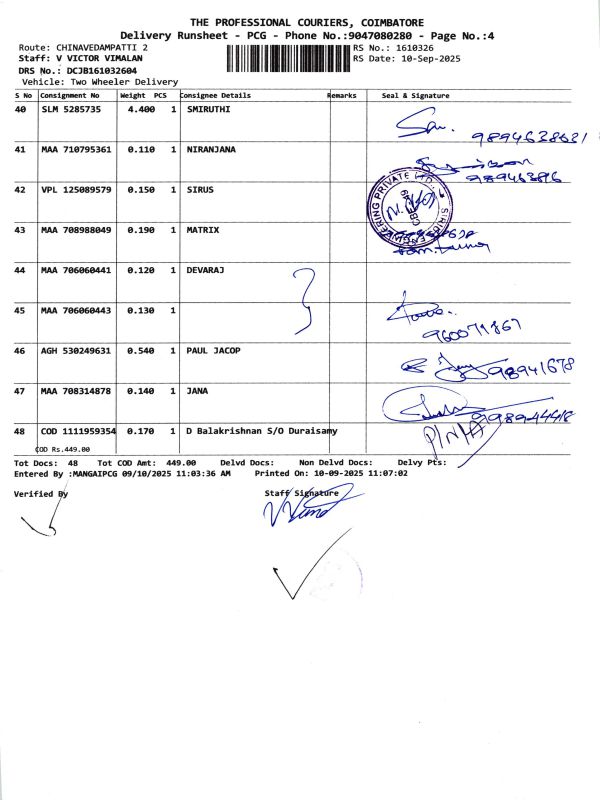 THE PROFESSIONAL COURIERS, COIMBATORE
Delivery Runsheet - PCG - Phone No.:9047080280 - Page No.:4
Route: CHINAVEDAMPATTI 2 RS No.: 1610326
Staff: V VICTOR VIMALAN RS Date: 10-Sep-2025
DRS No.: DCJB161032604
Vehicle: Two Wheeler Delivery
S No Consignment No Weight PCS Consignee Details Remarks Seal & Signature
40 SLM 5285735 4.400 1 SMIRUTHI
9894638631
41 MAA 710795361 0.110 1 NIRANJANA
98946386
42 VPL 125089579 0.150 1 SIRUS
43 MAA 708988049 0.190 1 MATRIX
44 MAA 706060441 0.120 1 DEVARAJ
45 MAA 706060443 0.130 1
960071867
46 AGH 530249631 0.540 1 PAUL JACOP
98941678
47 MAA 708314878 0.140 1 JANA
48 COD 1111959354 0.170 1 D Balakrishnan S/O Duraisamy
P/N/A
COD Rs.449.00
Tot Docs: 48 Tot COD Amt: 449.00 Delvd Docs: Non Delvd Docs: Delvy Pts:
Entered By :MANGAIPCG 09/10/2025 11:03:36 AM Printed On: 10-09-2025 11:07:02
Verified By Staff Signature